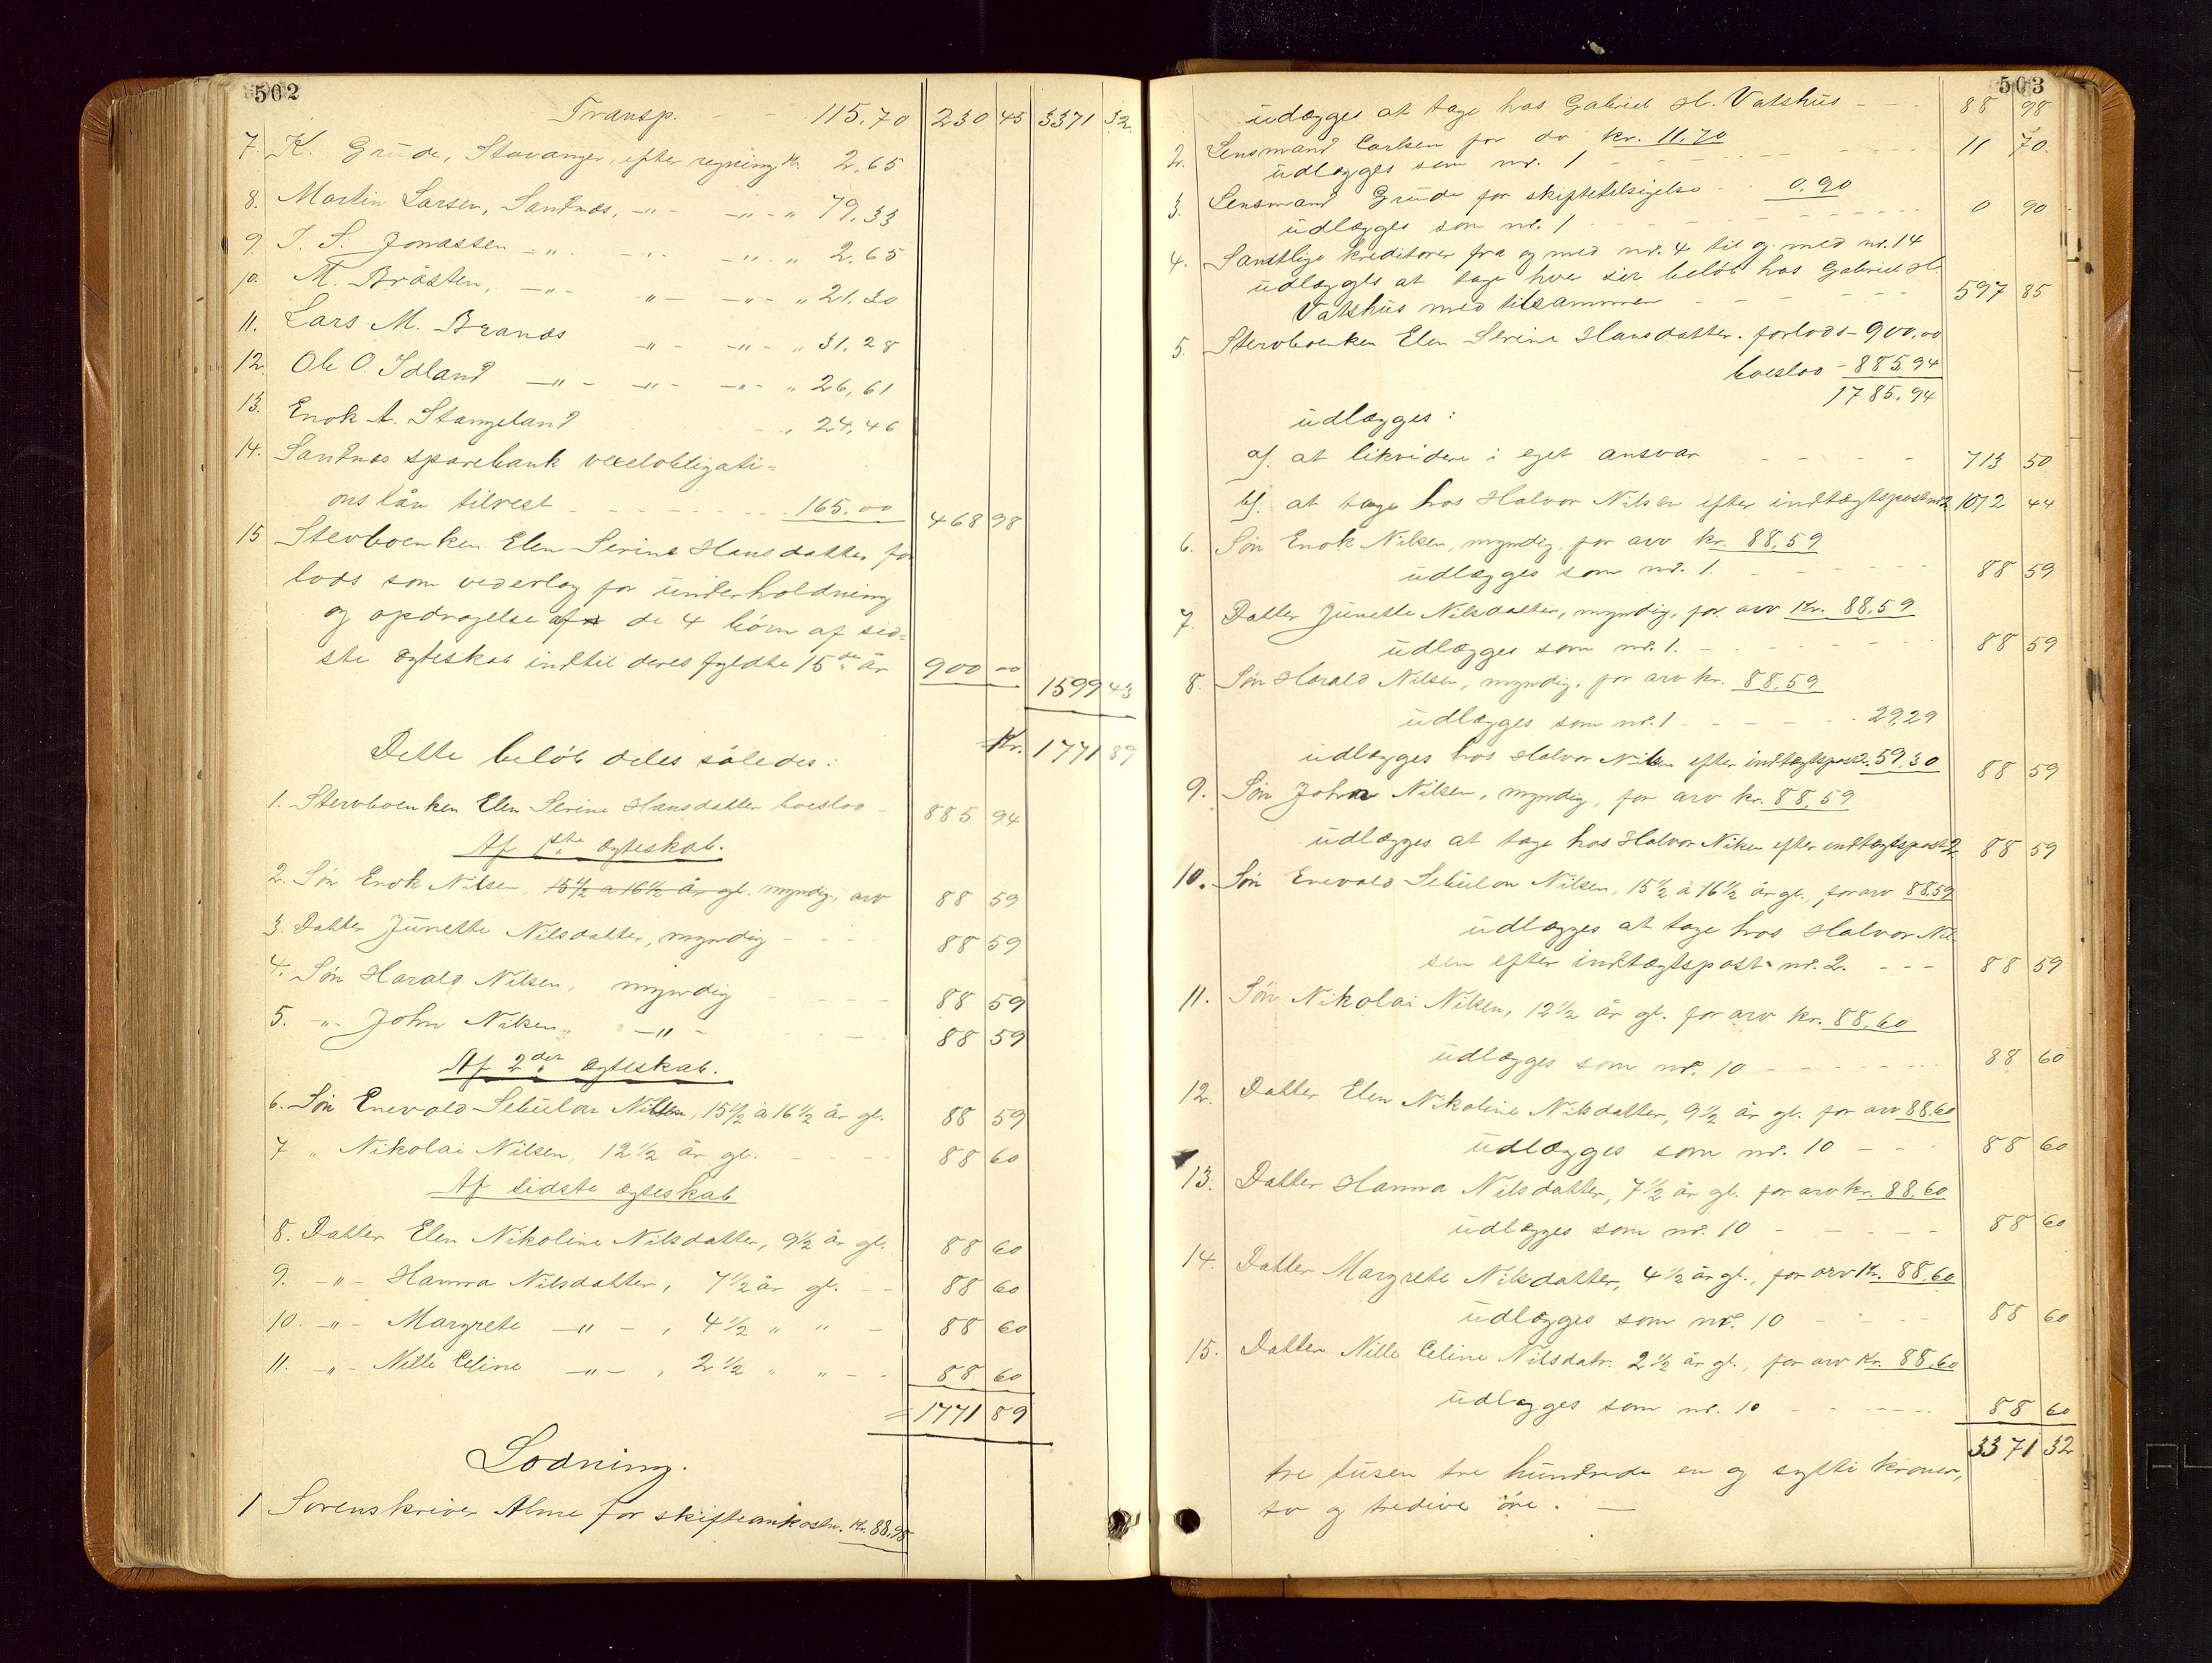 502
Transp. - - 115,70 230 45 3371 32
7. K. Grude, Stavanger, efter regning kr. 2,65
8. Martin Larsen, Sandnæs, -"- -"- " 79,33
9. T. S. Jonassen -"- -"- -"- " 2,65
10. M. Bråsten, -"- -"- -"- " 21,30
11. Lars M. Brands -"- -"- " 31,28
12. Ole O. Idland -"- -"- -"- " 26,61
13. Enok A. Stangeland - " 24,46
14. Sandnæs sparebank vexelobligati=
ons lån tilrest - - - 165,00 468 98
15 Stervboenken Elen Serine Hansdatter for
lods som vederlag for underholdning
og opdragelse af de 4 börn af sid=
ste ægteskab indtil deres fyldte 15de år 900 00
1599 43
Kr. 1771 89
Dette beløb deles således:
1. Stervboenken Elen Serine Hansdatter boeslod - 885 94
Af 1ste ægteskab.
2. Søn Enok Nilsen, 15½ a 16½ år gl. myndig, arv 88 59
3. Datter Junette Nilsdatter, myndig - - - 88 59
4. Søn Harald Nilsen, myndig - - - 88 59
5. -"- John Nilsen, -"- - - 88 59
Af 2det ægteskab.
6. Søn Enevald Sebulon Nilsen, 15½ à 16½ år gl. 88 59
7 " Nikolai Nilsen, 12½ år gl. - - - 88 60
Af sidste ægteskab
8. Datter Elen Nikoline Nilsdatter, 9½ år gl. 88 60
9. -"- Hanna Nilsdatter, 7½ år gl. - - 88 60
10. -"- Margrete -"- , 4½ " " - 88 60
11. -"- Nille Celine -"- , 2½ " " - - 88 60
= 1771 89
Lodning.
1 Sorenskriver Alme for skifteomkostn. kr. 88,98
503
udlægges at tage hos Gabriel H. Vatshus - - - 88 98
2. Lensmand Carlsen for do kr. 11.70
udlægges som nr. 1 - - - 11 70
3. Lensmand Grude for skiftetilsigelse - 0,90
udlægges som nr. 1 - - - 0 90
4. Samtlige kreditorer fra og med nr. 4 til og med nr. 14
udlægges at tage hver sit beløb hos Gabriel H.
Vatshus med tilsammen - - - 597 85
5. Stervboenken Elen Serine Hansdatter. forlods - 900,00
boeslod - 885,94
1785,94
udlægges:
a). at likvidere i eget ansvar - - - 713 50
b). at tage hos Halvor Nilsen efter indtægtspost nr. 2 1072 44
6. Søn Enok Nilsen, myndig, for arv kr. 88,59
udlægges som nr. 1. - - - 88 59
7. Datter Junette Nilsdatter, myndig, for arv kr. 88,59
udlægges som nr. 1. - - - 88 59
8. Søn Harald Nilsen, myndig, for arv kr. 88,59
udlægges som nr. 1 - - - 29,29
udlægges hos Halvor Nilsen efter indtægtspost 2. 59,30 88 59
9. Søn John Nilsen, myndig, for arv kr. 88,59
udlægges at tage hos Halvor Nilsen efter indtægtspost 2 88 59
10. Søn Enevald Sebulon Nilsen, 15½ à 16½ år gl., for arv 88.59
udlægges at tage hos Halvor Nil-
sen efter indtægtspost nr. 2. - - - 88 59
11. Søn Nikolai Nilsen, 12½ år gl. for arv kr. 88,60
udlægges som nr. 10 - - - 88 60
12. Datter Elen Nikoline Nilsdatter, 9½ år gl. for arv 88.60
udlægges som nr. 10 - - 88 60
13. Datter Hanna Nilsdatter, 7½ år gl. for arv kr. 88.60
udlægges som nr. 10 - - - 88 60
14. Datter Margrete Nilsdatter, 4½ år gl., for arv kr. 88,60
udlægges som nr. 10 - - - 88 60
15. Datter Nille Celine Nilsdatr. 2½ år gl., for arv kr. 88,60
udlægges som nr. 10 - - - 88 60
3371 32
tre tusen tre hundrede en og sytti kroner,
to og tredive øre. -